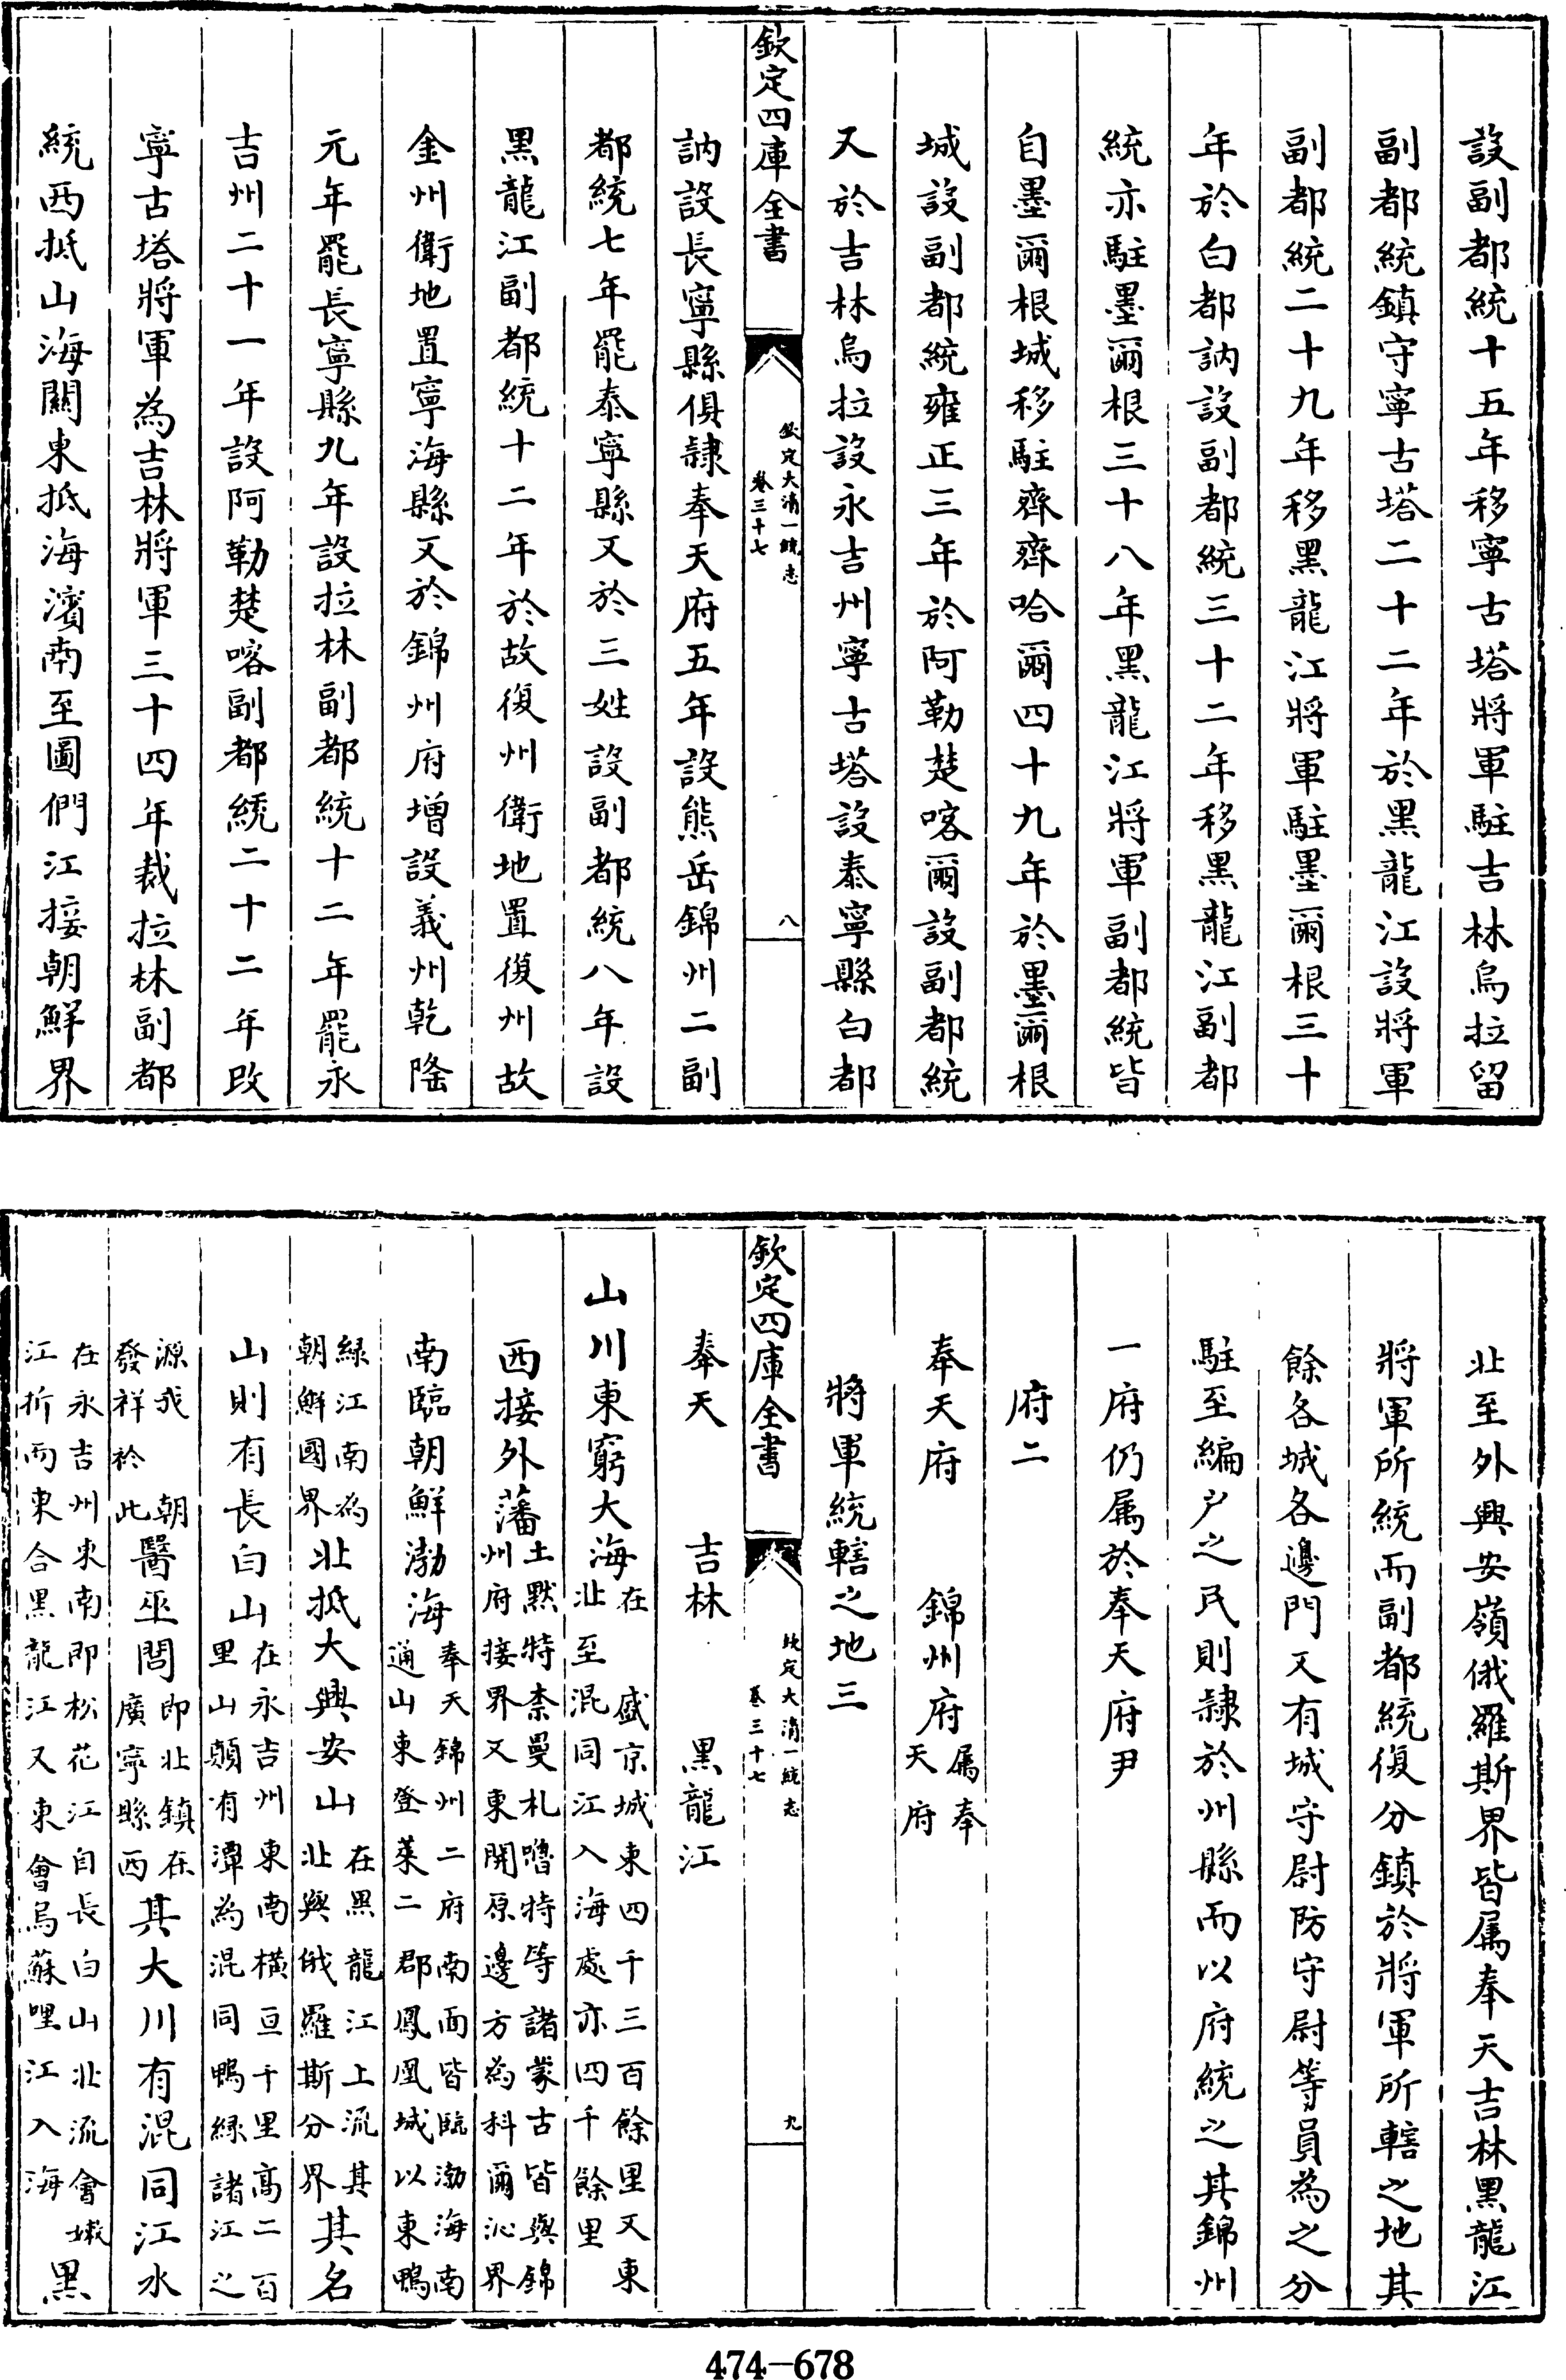 設副都統十五年移寧古塔將軍駐吉林烏拉留
副都統鎮守寧古塔二十二年於黑龍江設將軍
副都統二十九年移黑龍江將軍駐墨爾根三十
年於白都訥設副都統三十二年移黑龍江副都
統亦駐墨爾根三十八年黑龍江將軍副都統皆
自墨爾根城移駐齊齊哈爾四十九年於墨爾根
城設副都統雍正三年於阿勒楚喀爾設副都統
又於吉林烏拉設永吉州寧古塔設泰寧縣白都
欽定四庫全書
欽定大清一統志
卷三十七
八
訥設長寧縣俱隸奉天府五年設熊岳錦州二副
都統七年罷泰寧縣又於三姓設副都統八年設
黑龍江副都統十二年於故復州衛地置復州故
金州衛地置寧海縣又於錦州府增設義州乾隆
元年罷長寧縣九年設拉林副都統十二年罷永
吉州二十一年設阿勒楚喀副都統二十二年改
寧古塔將軍為吉林將軍三十四年裁拉林副都
統西抵山海關東抵海濱南至圖們江接朝鮮界
北至外興安嶺俄羅斯界皆属奉天吉林黑龍江
將軍所統而副都統復分鎮於將軍所轄之地其
餘各城各邊門又有城守尉防守尉等員為之分
駐至編户之民則隸於州縣而以府統之其錦州
一府仍属於奉天府尹
府二
奉天府　錦州府属奉天府
將軍統轄之地三
欽定四庫全書
欽定大清一統志
卷三十七
九
奉天　吉林　黑龍江
山川東窮大海在盛京城東四千三百餘里又東北至混同江入海處亦四千餘里
西接外藩土默特柰曼札嚕特等諸蒙古皆與錦州府接界又東開原邊方為科爾沁界
南臨朝鮮渤海奉天錦州二府南面皆臨渤海南通山東登萊二郡鳳凰城以東鴨
緑江南為朝鮮國界北抵大興安山在黑龍江上流其北與俄羅斯分界其名
山則有長白山在永吉州東南橫亘千里高二百里山顛有潭為混同鴨緑諸江之
源我朝發祥於此醫巫閭即北鎮在廣寧縣西其大川有混同江水
在永吉州東南即松花江自長白山北流會嫩江折而東合黑龍江又東會烏蘇哩江入海黑
474-678